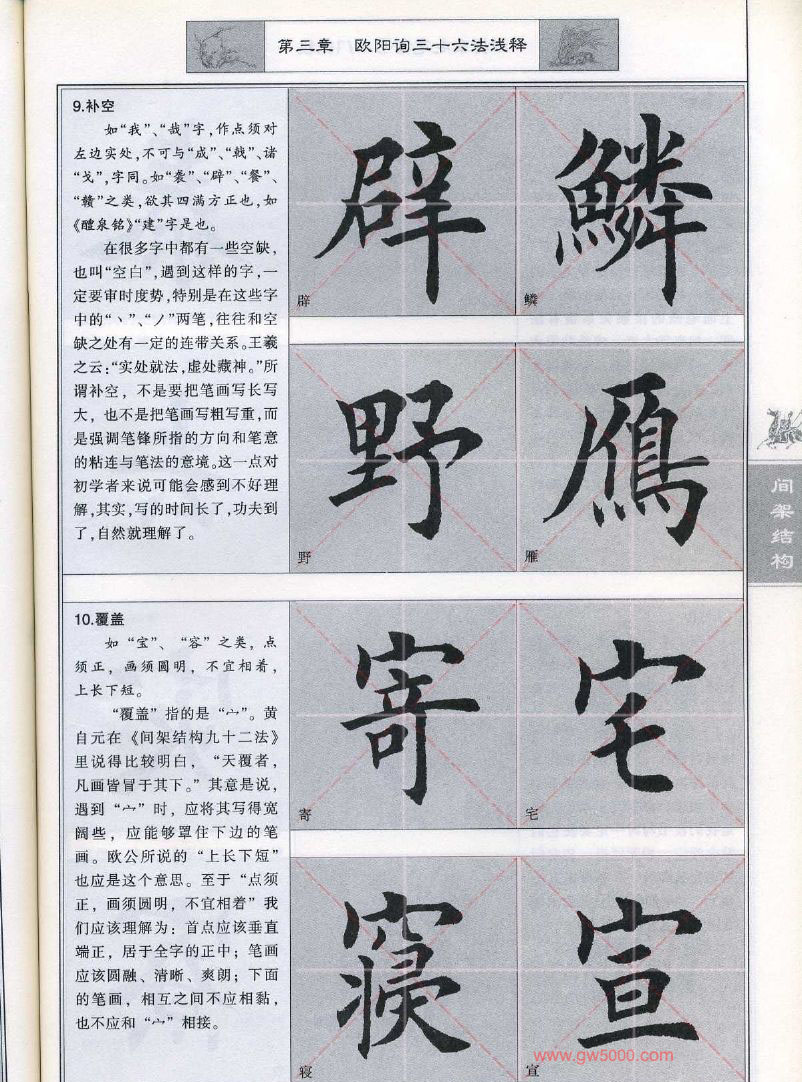 第三章 欧阳询三十六法浅释
9.补空
如“我”、“哉”字，作点须对
左边实处，不可与“成”、“戟”、诸
“戈”，字同。如“袭”、“辟”、“餐”、
“赣”之类，欲其四满方正也，如
《醴泉铭》“建”字是也。
在很多字中都有一些空缺，
也叫“空白”，遇到这样的字，一
定要审时度势，特别是在这些字
中的“丶”、“ノ”两笔，往往和空
缺之处有一定的连带关系。王羲
之云：“实处就法，虚处藏神。”所
谓补空，不是要把笔画写长写
大，也不是把笔画写粗写重，而
是强调笔锋所指的方向和笔意
的粘连与笔法的意境。这一点对
初学者来说可能会感到不好理
解，其实，写的时间长了，功夫到
了，自然就理解了。
辟 鳞
辟 鳞
野 雁
野 雁
10.覆盖
如“宝”、“容”之类，点
须正，画须圆明，不宜相着，
上长下短。
“覆盖”指的是“宀”。黄
自元在《间架结构九十二法》
里说得比较明白，“天覆者，
凡画皆冒于其下。”其意是说，
遇到“宀”时，应将其写得宽
阔些，应能够罩住下边的笔
画。欧公所说的“上长下短”
也应是这个意思。至于“点须
正，画须圆明，不宜相着”我
们应该理解为：首点应该垂直
端正，居于全字的正中；笔画
应该圆融、清晰、爽朗；下面
的笔画，相互之间不应相黏，
也不应和“宀”相接。
寄 宅
寄 宅
寝 宣
寝 宣
间架结构
www.gw5000.com